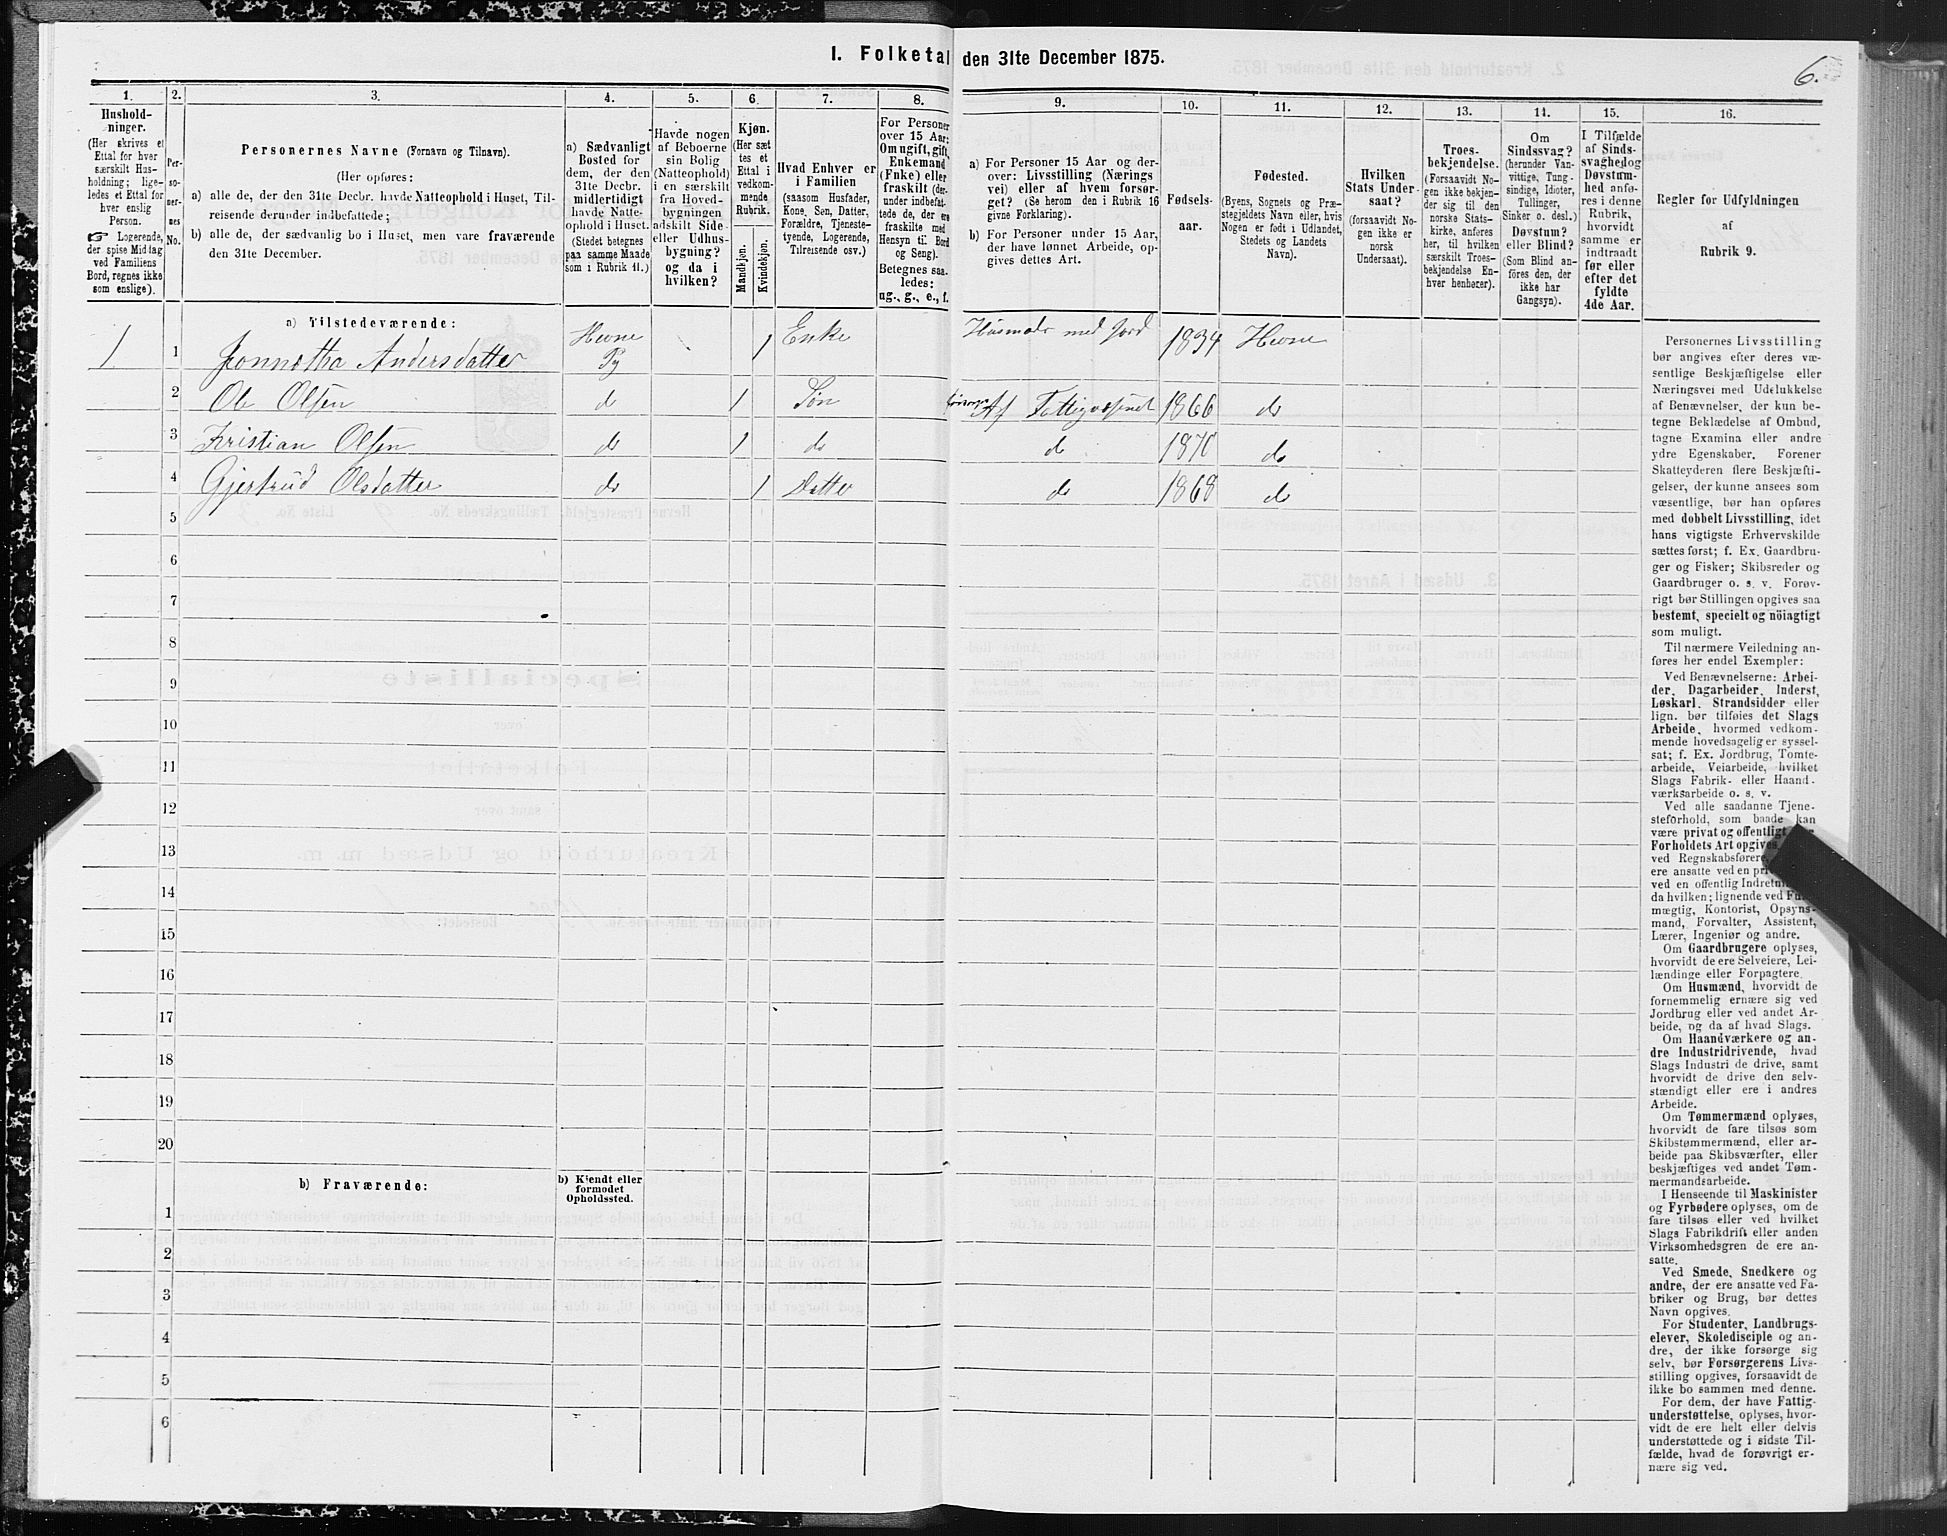 I. Folketal den 31te December 1875.
6.
1.
Hushold-
ninger.
(Her skrives et
Ettal for hver
særskilt Hus-
holdning; lige-
ledes et Ettal for
hver enslig
Person.
Logerende,
der spise Midtag
ved Familiens
Bord, regnes ikke
som enslige).
2.
Per-
so-
ner-
nes
No.
3.
Personernes Navne (Fornavn og Tilnavn).
(Her opføres:
a) alle de, der den 31te Decbr. havde Natteophold i Huset, Til-
reisende derunder indbefattede;
b) alle de, der sædvanlig bo i Huset, men vare fraværende
den 31te December.
4.
a) Sædvanligt
Bosted for
dem, der den
31te Decbr.
midlertidigt
havde Natte-
ophold i Huset.
(Stedet betegnes
paa samme Maade
som i Rubrik 11.)
5.
Havde nogen
af Beboerne
sin Bolig
(Natteophold)
i en særskilt
fra Hoved-
bygningen
adskilt Side-
eller Udhus-
bygning?
og da i
hvilken?
6.
Kjøn.
(Her sæt
tes et
Ettal i
vedkom-
mende
Rubrik.
Mandkjøn.
Kvindekjøn.
7.
Hvad Enhver er
i Familien
(saasom Husfader,
Kone, Søn, Datter,
Forældre, Tjeneste-
tyende, Logerende,
Tilreisende osv.)
8.
For Personer
over 15 Aar:
Om ugift, gift,
Enkemand
(Enke) eller
fraskilt (der-
under indbefat-
tede de, der ere
fraskilte med
Hensyn til Bord
og Seng).
Betegnes saa-
ledes:
ug., g., e., f.
9.
a) For Personer 15 Aar og der-
over: Livsstilling (Nærings
vei) eller af hvem forsør-
get? (Se herom den i Rubrik 16
givne Forklaring).
b) For Personer under 15 Aar,
der have lønnet Arbeide, op-
gives dettes Art.
10.
Fødsels-
aar.
11.
Fødested.
(Byens, Sognets og Præ-
stegjeldets Navn eller, hvis
Nogen er født i Udlandet,
Stedets og Landets
Navn).
12.
Hvilken
Stats Under-
saat?
(forsaavidt No-
gen ikke er
norsk
Undersaat).
13.
Troes-
bekjendelse.
(Forsaavidt No-
gen ikke bekjen-
der sig til den
norske Stats-
kirke, anføres
her, til hvilken
særskilt Troes-
bekjendelse En-
hver henhører).
14.
Om
Sindssvag?
(herunder Van-
vittige, Tung-
sindige, Idioter,
Tullinger,
Sinker o. desl.)
Døvstum?
eller Blind?
(Som Blind an-
føres den, der
ikke har
Gangsyn).
15.
I Tilfælde
af Sinds-
svaghed og
Døvstum-
hed anfø-
res i denne
Rubrik,
hvorvidt
samme er
indtraadt
før eller
efter det
fyldte
4de Aar.
16.
Regler for Udfyldningen
af
Rubrik 9.
a) Tilstedeværende:
1 1 Jonnetha Andersdatter Hevne Pg 1 Enke Husmads med Jord 1834 Hevne
2 Ole Olsen do 1 Søn Af Fattigvæsenet 1866 do
3 Kristian Olsen do 1 do do 1870 do
4 Gjertrud Olsdatter do 1 Datter do 1868 do
5
6
7
8
9
10
11
12
13
14
15
16
17
18
19
20
b) Fraværende:
b) Kjendt eller
formodet
Opholdssted.
1
2
3
4
5
6
Personernes Livsstilling
bør angives efter deres væ-
sentlige Beskjæftigelse eller
Næringsvei med Udelukkelse
af Benævnelser, der kun be-
tegne Beklædelse af Ombud,
tagne Examina eller andre
ydre Egenskaber. Forener
Skatteyderen flere Beskjæfti-
gelser, der kunne ansees som
væsentlige, bør han opføres
med dobbelt Livsstilling, idet
hans vigtigste Erhvervskilde
sættes først; f. Ex. Gaardbru-
ger og Fisker; Skibsreder og
Gaardbruger o. s. v. Forøv-
rigt bør Stillingen opgives saa
bestemt, specielt og nöiagtigt
som muligt.
Til nærmere Veiledning an-
føres her endel Exempler:
Ved Benævnelserne: Arbei-
der, Dagarbeider, Inderst,
Løskarl, Strandsidder eller
lign. bør tilføies det Slags
Arbeide, hvormed vedkom-
mende hovedsagelig er syssel-
sat; f. Ex. Jordbrug, Tomte-
arbeide, Veiarbeide, hvilket
Slags Fabrik- eller Haand-
værksarbeide o. s. v.
Ved alle saadanne Tjene-
steforhold, som baade kan
være privat og offentligt
Forholdets Art opgives,
ved Regnskabsførere,
ere ansatte ved en
ved en offentlig
da hvilken; lignende ved
mægtig, Kontorist, Opsyns-
mand, Forvalter, Assistent,
Lærer, Ingeniør og andre.
Om Gaardbrugere oplyses,
hvorvidt de ere Selveiere, Lei-
lændinge eller Forpagtere.
Om Husmænd, hvorvidt de
fornemmelig ernære sig ved
Jordbrug eller ved andet Ar-
beide, og da af hvad Slags.
Om Haandværkere og an-
dre Industridrivende, hvad
Slags Industri de drive, samt
hvorvidt de drive den selv-
stændigt eller ere i andres
Arbeide.
Om Tømmermænd oplyses,
hvorvidt de fare tilsøs som
Skibstømmermænd, eller ar-
beide paa Skibsværfter, eller
beskjæftiges ved andet Tøm-
mermandsarbeide.
I Henseende til Maskinister
og Fyrbødere oplyses, om de
fare tilsøs eller ved hvilket
Slags Fabrikdrift eller anden
Virksomhedsgren de ere an-
satte.
Ved Smede, Snedkere og
andre, der ere ansatte ved Fa-
briker og Brug, bør dettes
Navn opgives.
For Studenter, Landbrugs-
elever, Skoledisciple og an-
dre, der ikke forsørge sig
selv, bør Forsørgerens Livs-
stilling opgives, forsaavidt de
ikke bo sammen med denne.
For dem, der have Fattig-
understøttelse, oplyses, hvor-
vidt de ere helt eller delvis
understøttede og i sidste Til-
fælde, hvad de forøvrigt er-
nære sig ved.